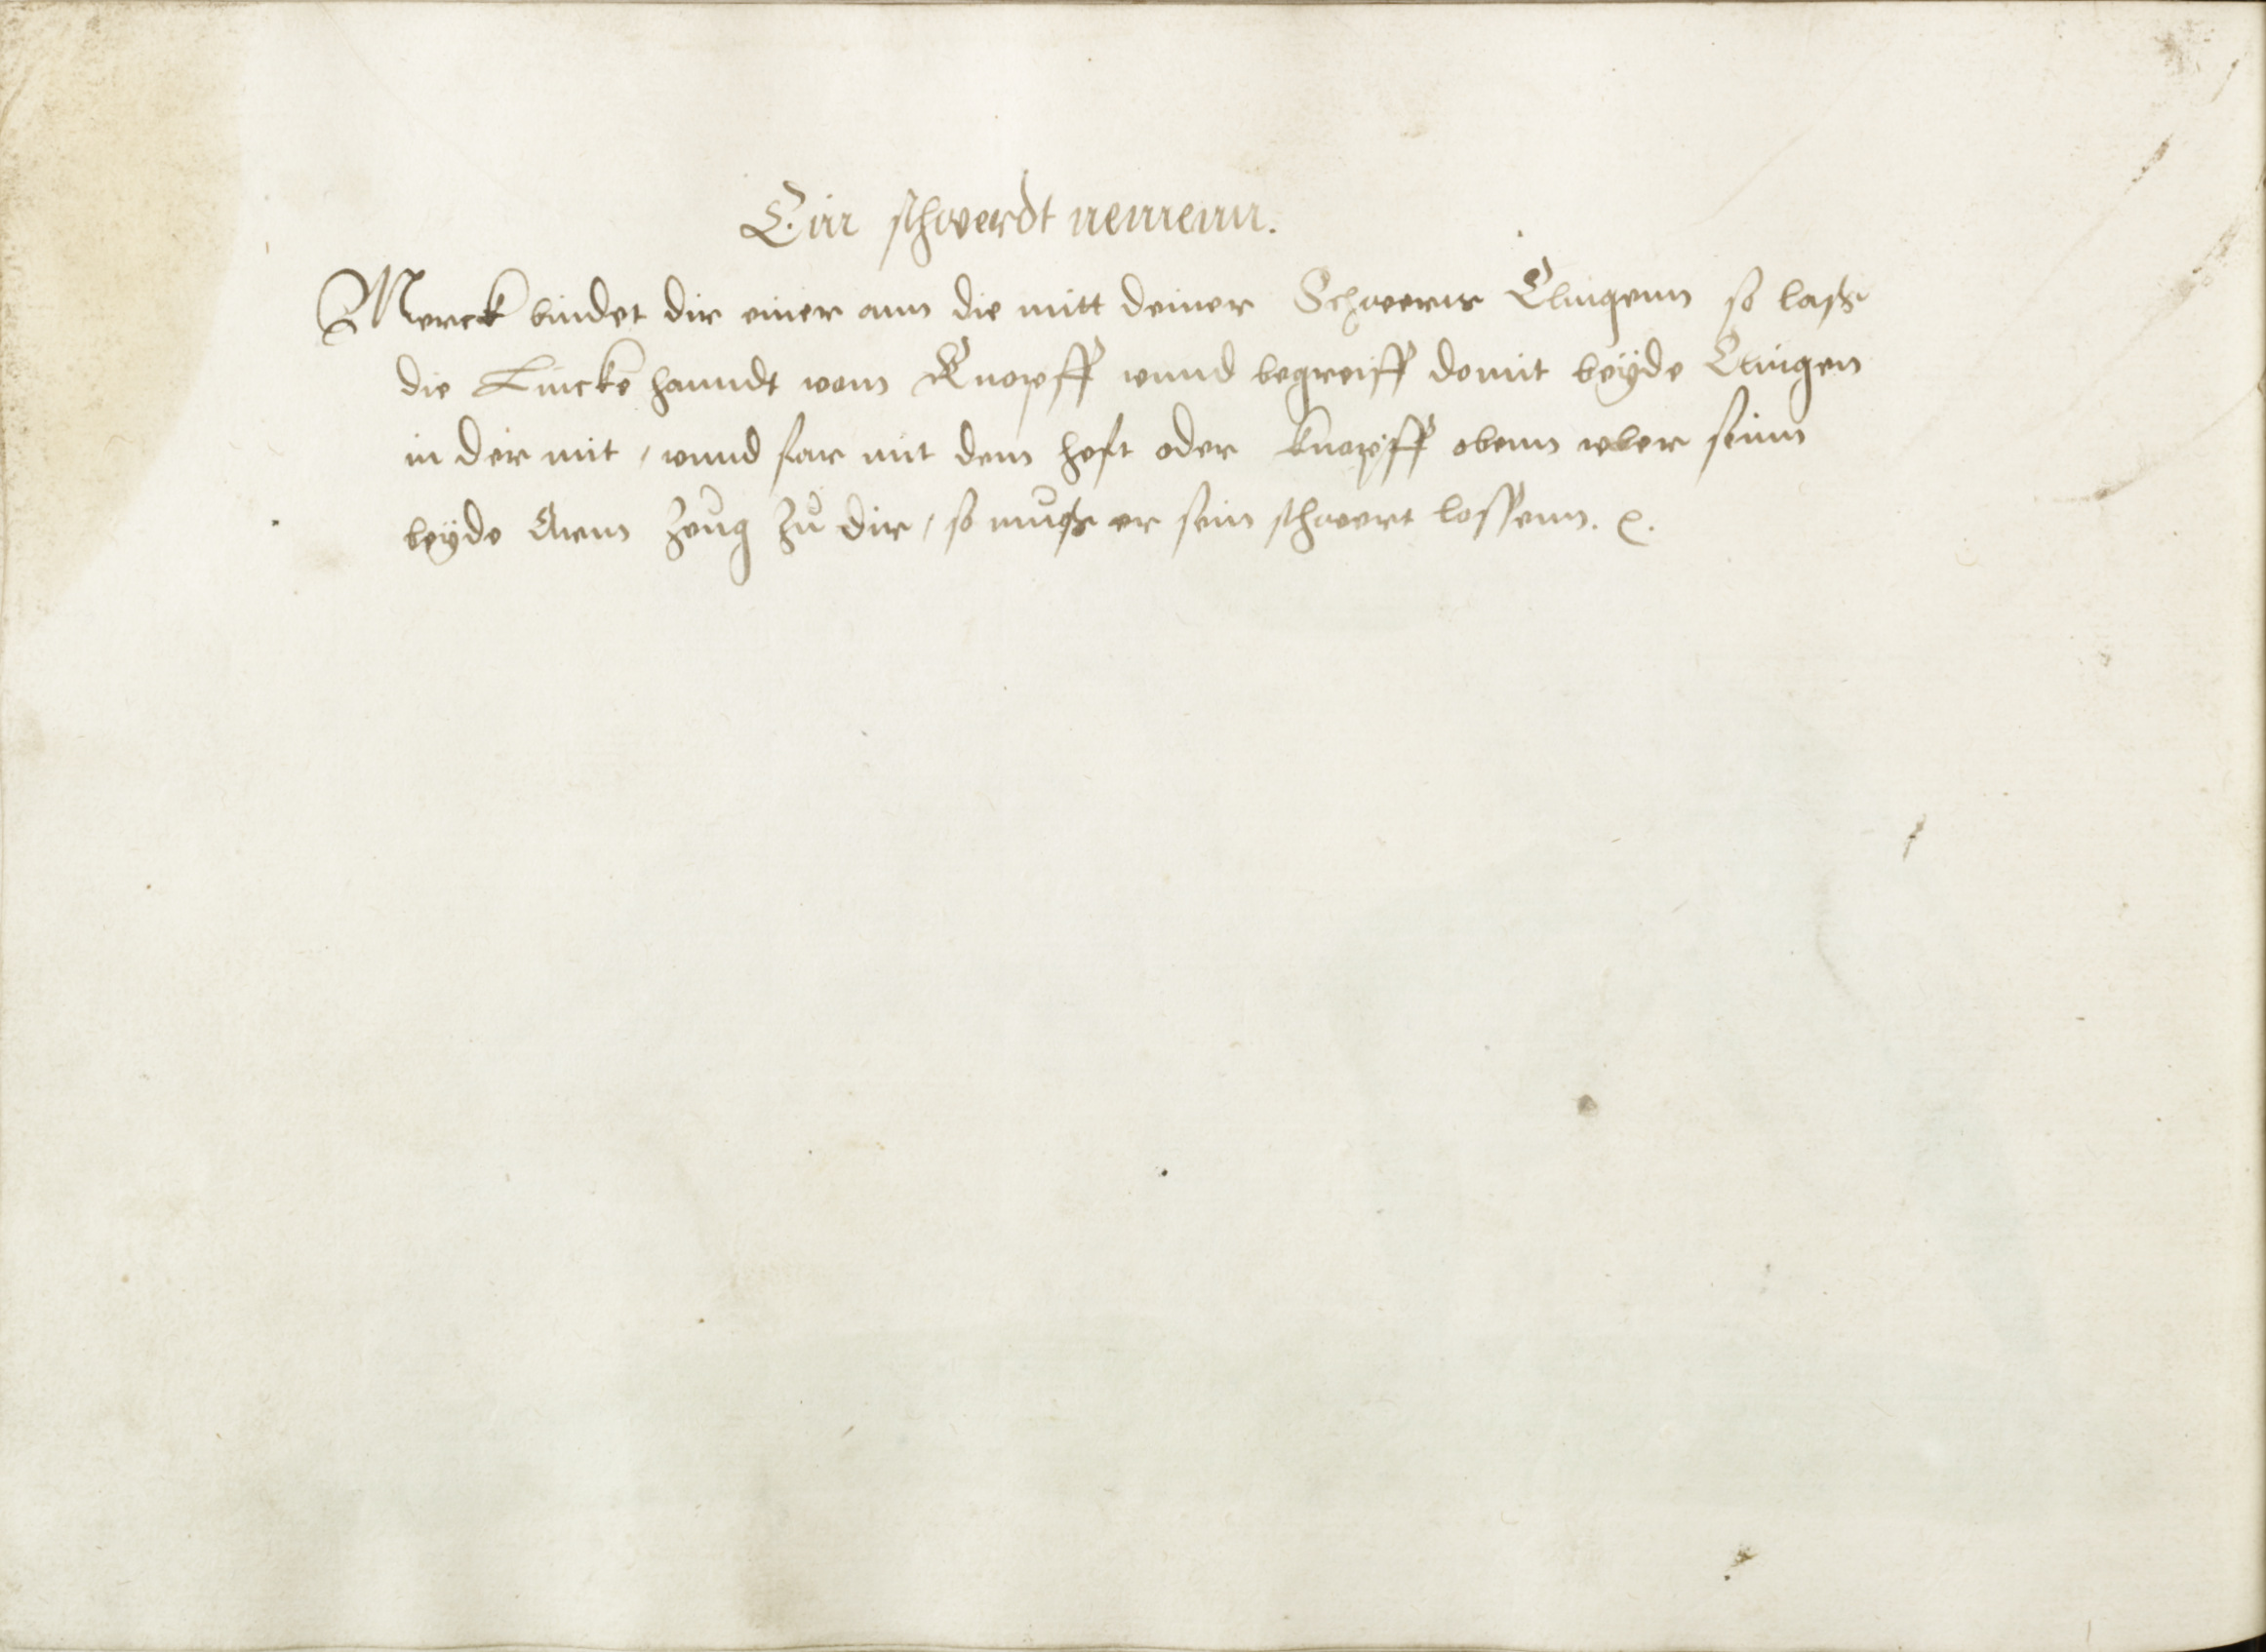 Ein schwerdt nemenn.
Merck bindet dir einer ann die mitt deiner Schwerts Clingenn so laß
die Lincke hanndt vom Knopff vnnd begreiff domit beyde Clingen
in der mit, vnnd far mit dem heft oder knopff obenn vber seinn
beyde Arm zeug zu dir, so muß er sein schwert lossenn.